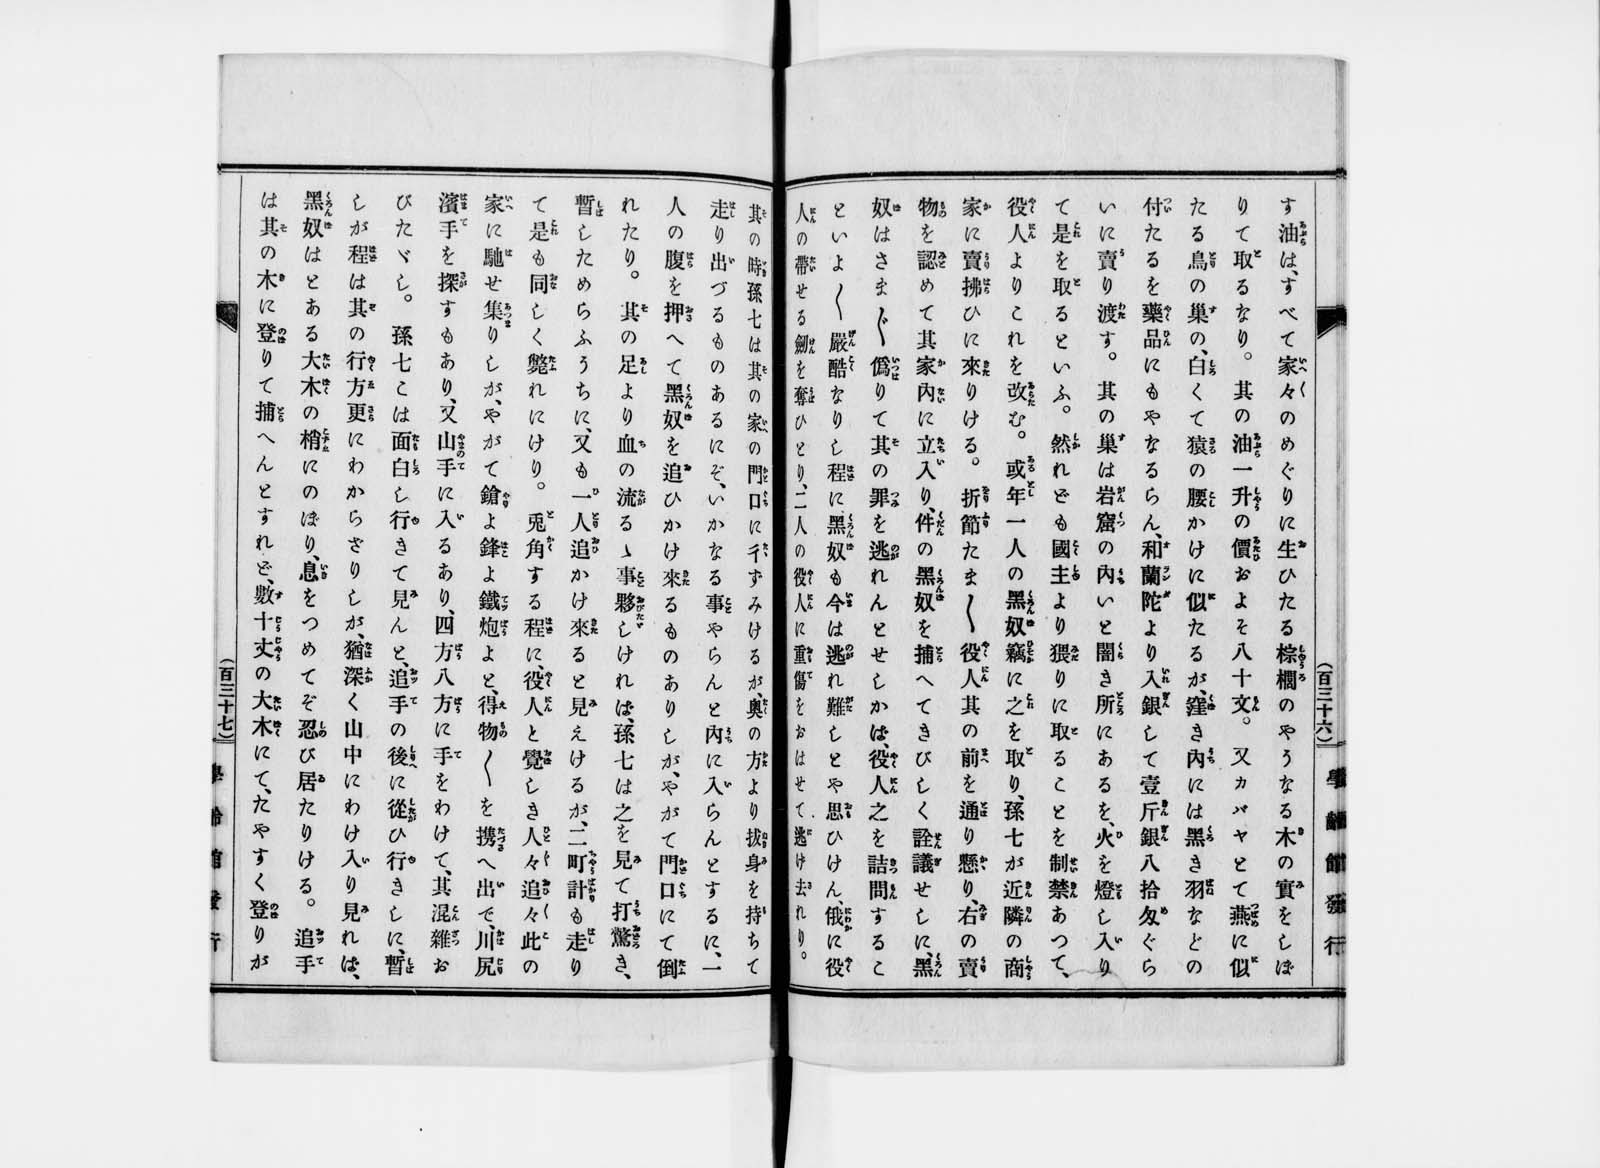 す油は、すべて家々のめぐりに生ひたる棕櫚のやうなる木の實をしぼ
りて取るなり。其の油一升の價およそ八十文。又カバヤとて燕に似
たる鳥の巢の、白くて猿の腰かけに似たるが、窪き內には黑き羽などの
付たるを藥品にもやなるらん、和蘭陀より入銀して壹斤銀八拾匁ぐら
いに賣り渡す。其の巢は岩窟の內いと闇き所にあるを、火を燈し入り
て是を取るといふ。然れども國主より猥りに取ることを制禁あつて、
役人よりこれを改む。或年一人の黑奴竊に之を取り、孫七が近隣の商
家に賣拂ひに來りける。折節たま〱役人其の前を通り懸り、右の賣
物を認めて其家內に立入り、件の黑奴を捕へてきびしく詮議せしに、黑
奴はさま〲僞りて其の罪を逃れんとせしかば、役人之を詰問するこ
といよ〱嚴酷なりし程に黑奴も今は逃れ難しとや思ひけん、俄に役
人の帶せる劍を奪ひとり、二人の役人に重傷をおはせて逃け去れり。
(百三十六)
學齡館發行
其の時孫七は其の家の門口に彳ずみけるが、奧の方より拔身を持ちて
走り出づるものあるにぞ、いかなる事やらんと內に入らんとするに、一
人の腹を押へて黑奴を追ひかけ來るものありしが、やがて門口にて倒
れたり。其の足より血の流るゝ事夥しければ、孫七は之を見て打驚き、
暫しためらふうちに、又も一人追かけ來ると見えけるが、二町計も走り
て是も同しく斃れにけり。兎角する程に、役人と覺しき人々追々此の
家に馳せ集りしが、やがて鎗よ鋒よ鐵炮よと、得物〱を携へ出で、川尻
濱手を探すもあり、又山手に入るあり、四方八方に手をわけて、其混雜お
びたゞし。孫七こは面白し行きて見んと、追手の後に從ひ行きしに、暫
しが程は其の行方更にわからざりしが、猶深く山中にわけ入り見れば、
黑奴はとある大木の梢にのぼり、息をつめてぞ忍び居たりける。追手
は其の木に登りて捕へんとすれど、數十丈の大木にて、たやすく登りが
(百三十七)
學齡館發行